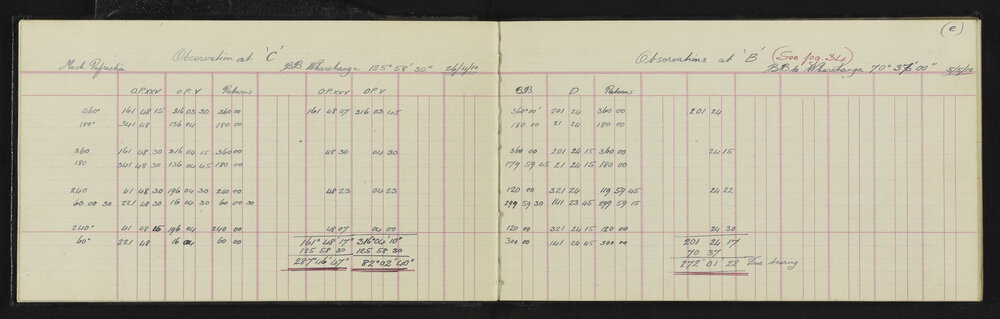 (e)
Observation at 'C'
Much Refraction BB Wharehanga 125° 58' 30" 26/4/10
O.P. XXV O.P. V Returns O.P. XXV O.P. V
360° 161 48 15 316 03 30 360 00 161 48 07 316 03 45
180° 341 48 136 04 180 00
360 161 48 30 316 04 15 360 00 48 30 04 30
180 341 48 30 136 04 45 180 00
240 41 48 30 196 04 30 240 00 48 23 04 23
60 00 30 221 48 30 16 04 30 60 00 30
240° 41 48 15 196 04 240 00 48 07 04 00
60° 221 48 16 04 60 00 161° 48' 17" 316° 04' 10"
125 58 30 125 58 30
287° 46' 47" 82° 02' 40"
Observations at 'B' (See pg 34)
BB to Wharehanga 70° 37' 00"
BB D Returns
360° 00' 201 24 360 00 201 24
180 00 21 24 180 00
360 00 201 24 15 360 00 24 15
179 59 45 21 24 15 180 00
120 00 321 24 119 59 45 24 22
299 59 30 141 23 45 299 59 15
120 00 321 24 15 120 00 24 30
300 00 141 24 45 300 00 201 24 17
70 37
272° 01 22 True bearing